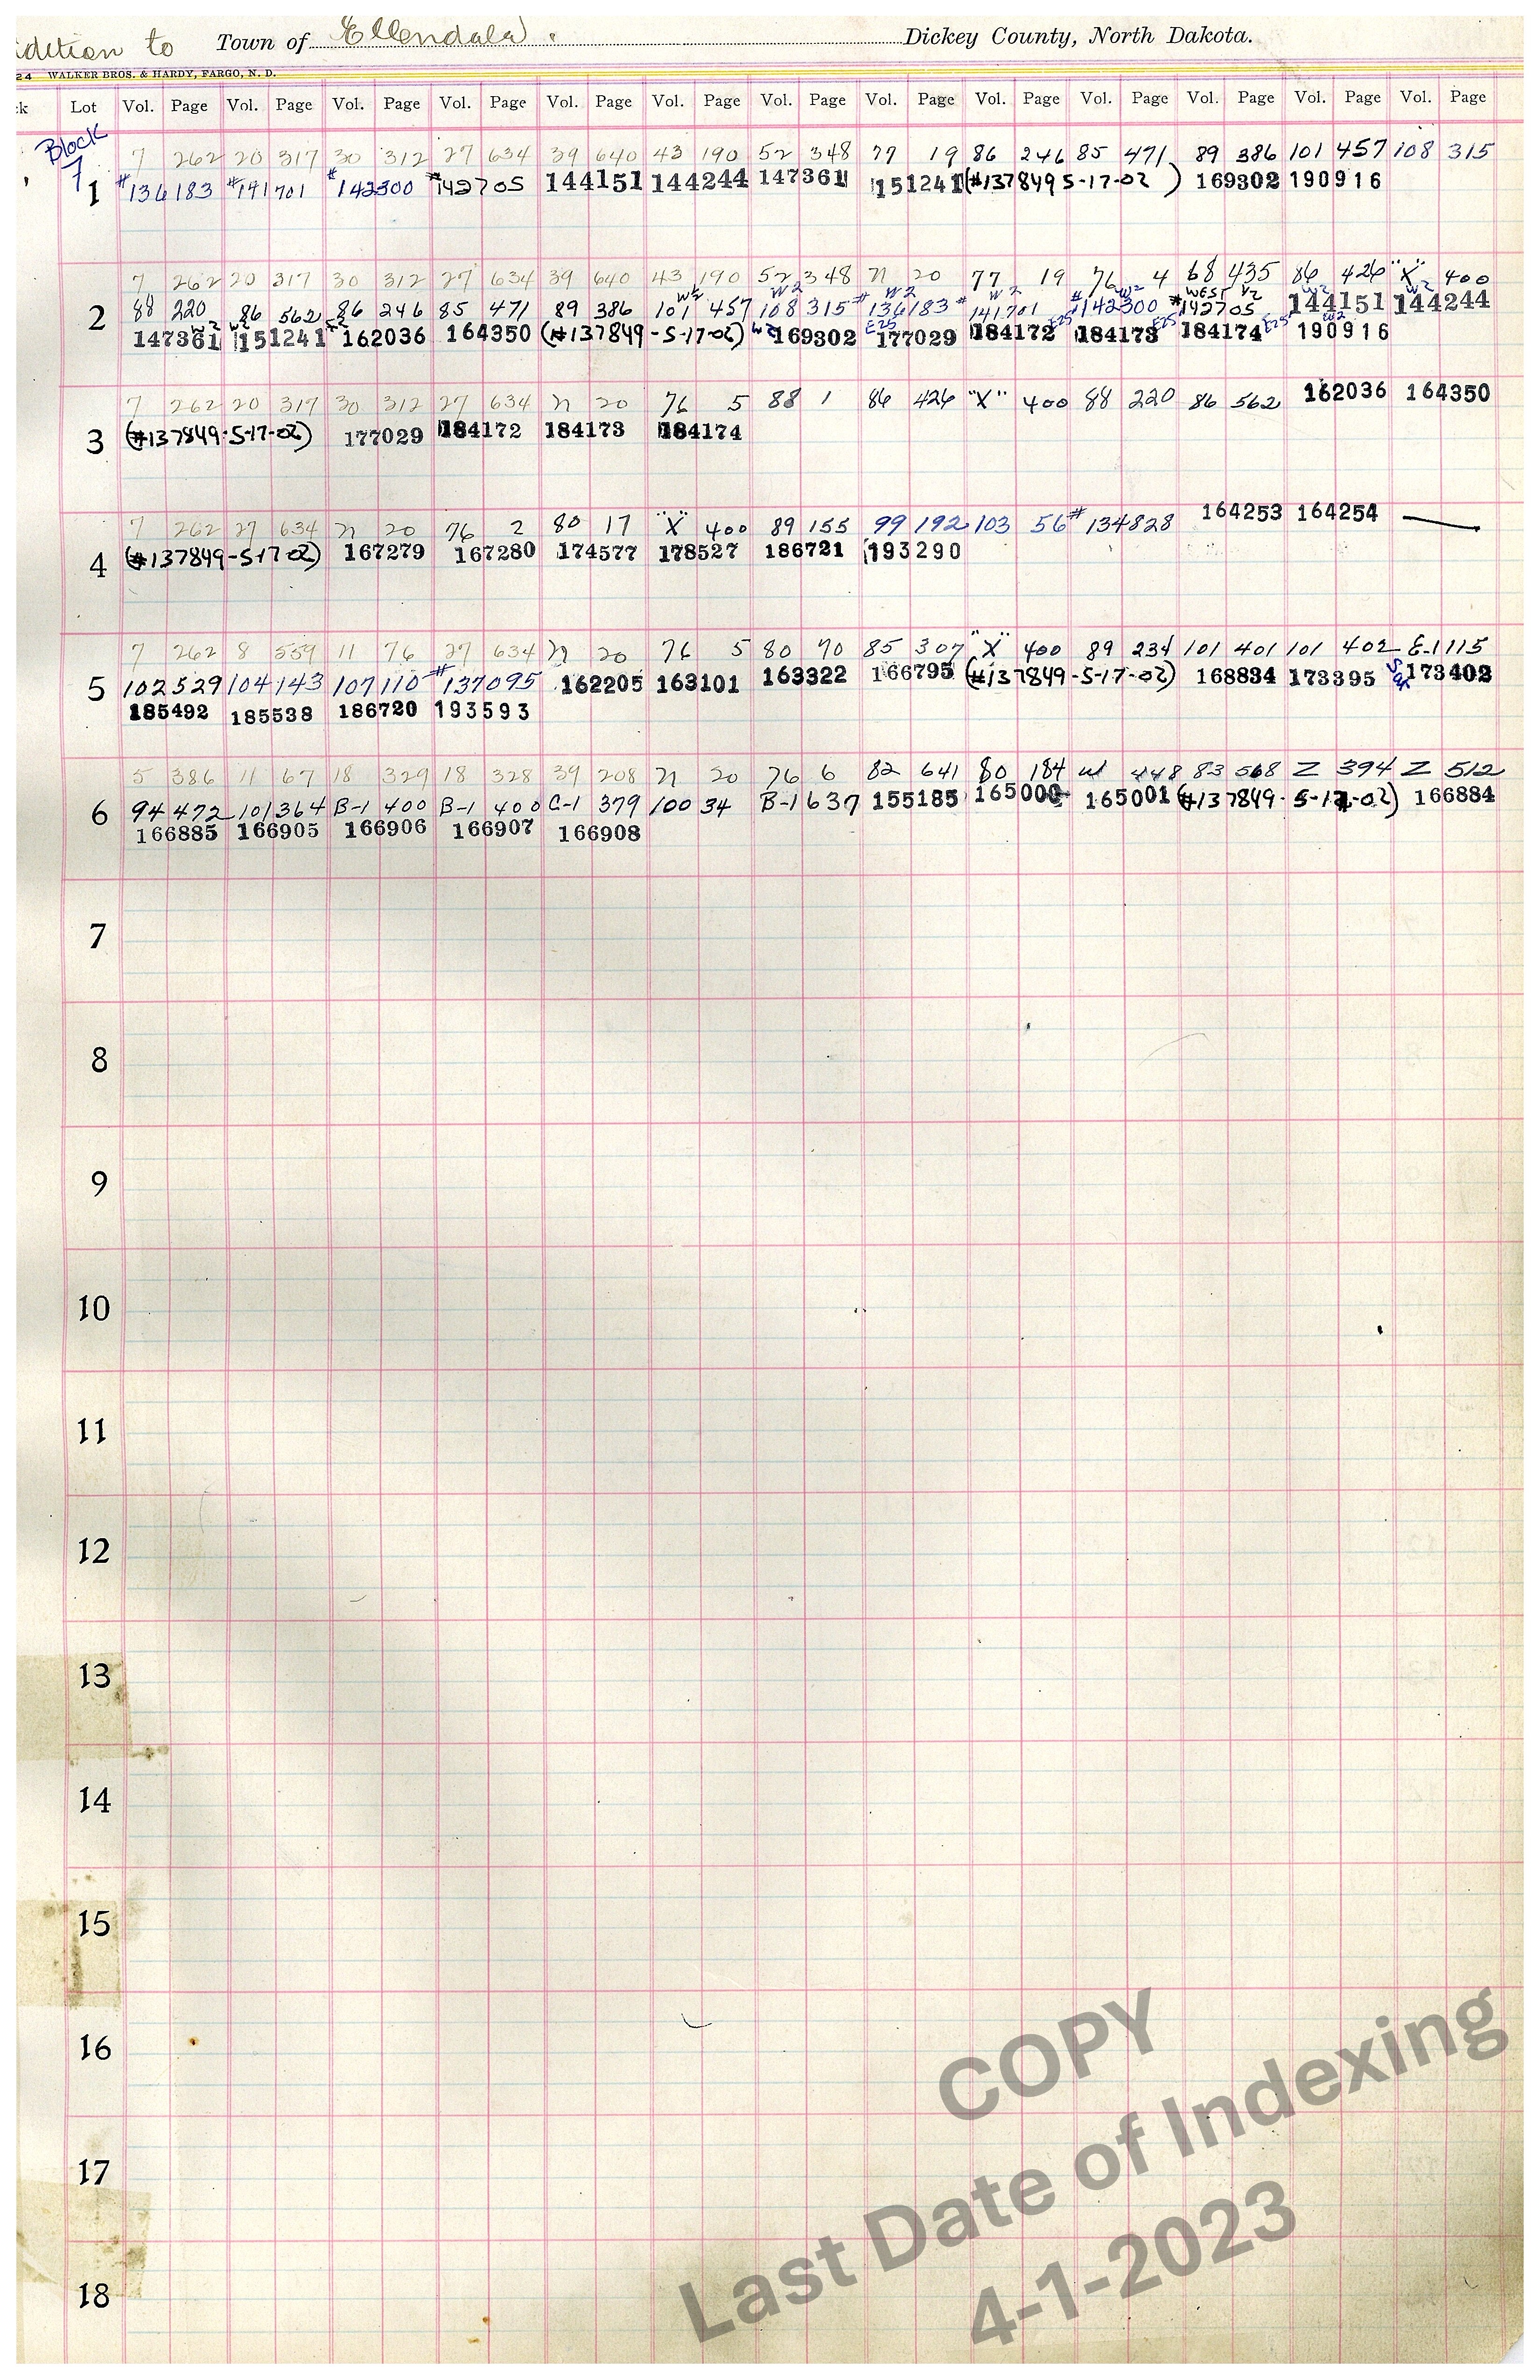 dition to Town of Ellendale. Dickey County, North Dakota.
24 WALKER BROS. & HARDY, FARGO, N. D.
k Lot Vol. Page Vol. Page Vol. Page Vol. Page Vol. Page Vol. Page Vol. Page Vol. Page Vol. Page Vol. Page Vol. Page Vol. Page Vol. Page
Block
7
7 262 20 317 30 312 27 634 39 640 43 190 52 348 77 19 86 246 85 471 89 386 101 457 108 315
1 #136183 #141701 #142300 #142705 144151 144244 147361 151241 (#137849 5-17-02) 169302 190916
7 262 20 317 30 312 27 634 39 640 43 190 52 348 77 20 77 19 76 4 68 435 86 426 "X" 400
W2 W2 W2 W2 W2 West 1/2 W2 W2
2 88 220 86 562 86 246 85 471 89 386 101 457 108 315 #136183 #141701 #142300 #142705 144151 144244
W2 W2 W2 E25 E25 E25 E25 W2
147361 151241 162036 164350 (#137849-5-17-02) 169302 177029 184172 184173 184174 190916
7 262 20 317 30 312 27 634 77 20 76 5 88 1 86 426 "X" 400 88 220 86 562 162036 164350
3 (#137849-5-17-02) 177029 184172 184173 184174
7 262 27 634 77 20 76 2 80 17 "X" 400 89 155 99 192 103 56 #134828 164253 164254
4 (#137849-5-17-02) 167279 167280 174577 178527 186721 193290
7 262 8 559 11 76 27 634 77 20 76 5 80 70 85 307 "X" 400 89 234 101 401 101 402 E-1 115
5 102 529 104 143 107 110 #137095 162205 163101 163322 166795 (#137849-5-17-02) 168834 173395 173402
185492 185538 186720 193593
5 386 11 67 18 329 18 328 39 208 77 20 76 6 82 641 80 184 W 448 83 568 Z 394 Z 512
6 94 472 101 364 B-1 400 B-1 400 C-1 379 100 34 B-1 637 155185 165000 165001 (#137849-5-17-02) 166884
166885 166905 166906 166907 166908
7
8
9
10
11
12
13
14
15
16
17
18
COPY
Last Date of Indexing
4-1-2023